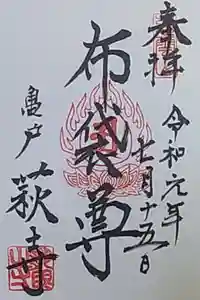 奉拝
令和元年
七月十五日
布袋尊
亀戸
萩寺